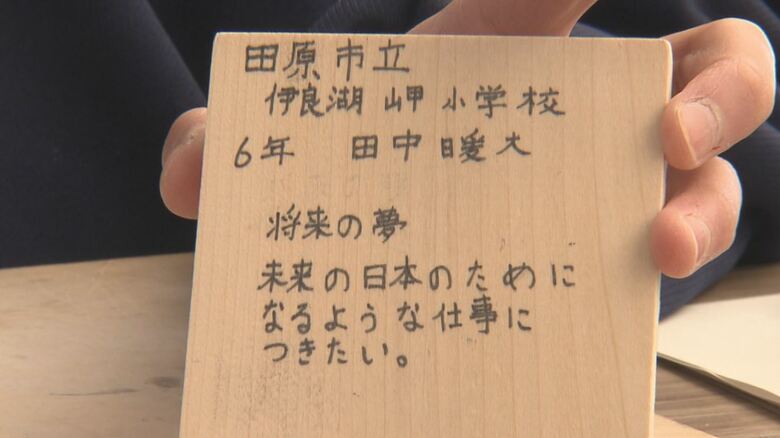 田原市立
伊良湖岬小学校
6年 田中暖大
将来の夢
未来の日本のために
なるような仕事に
つきたい。